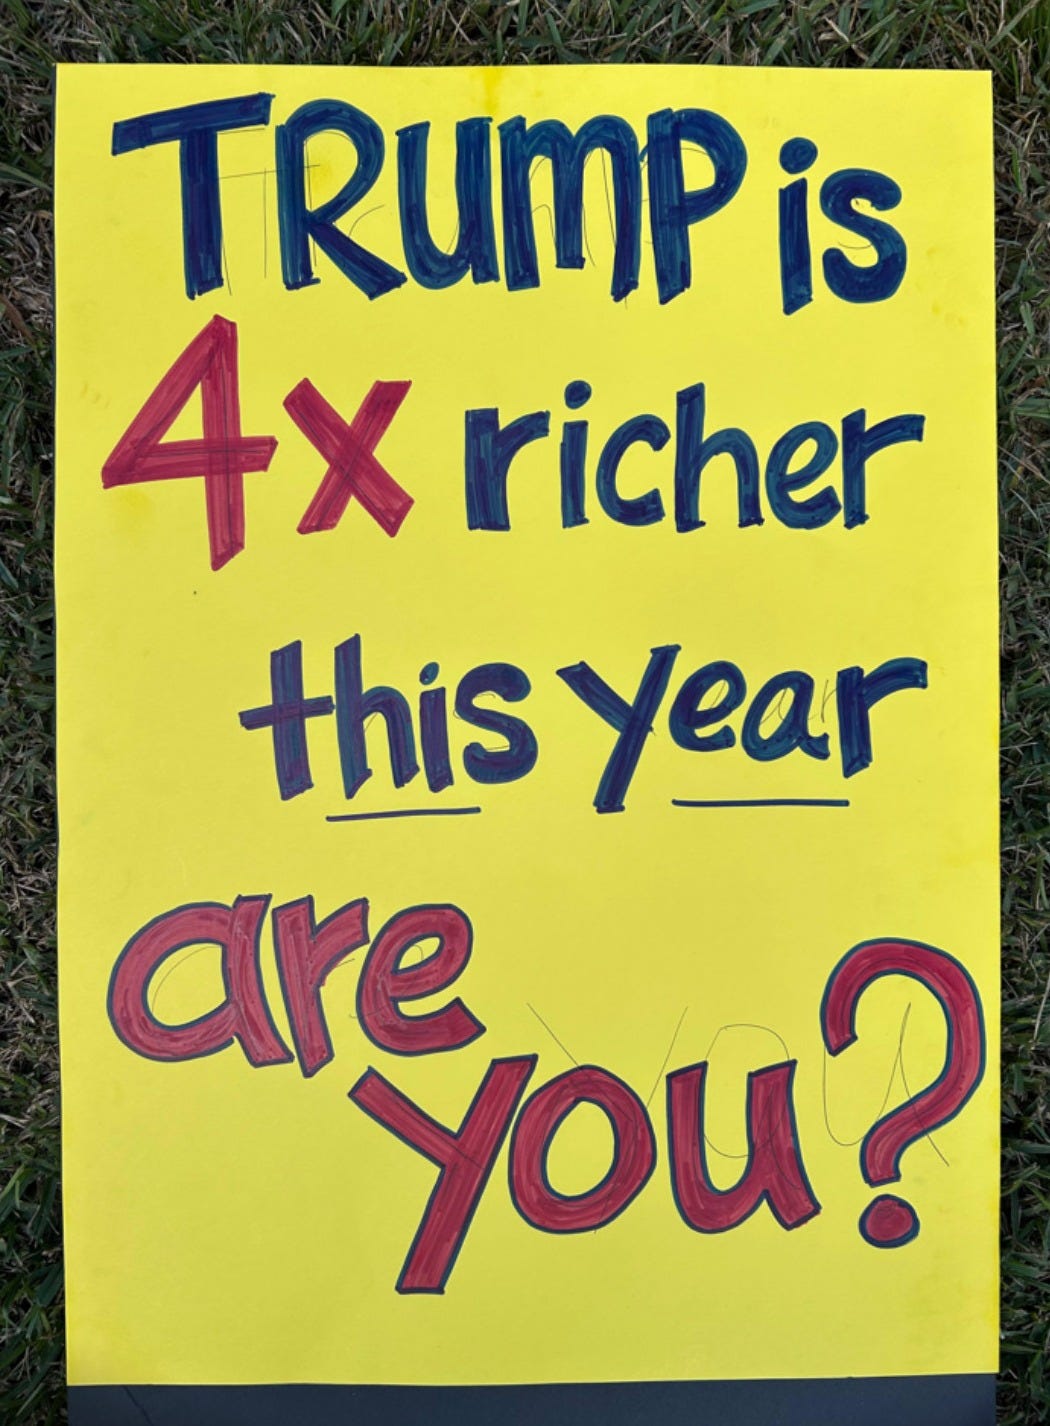 TRumP is
4x richer
this year
are
you?